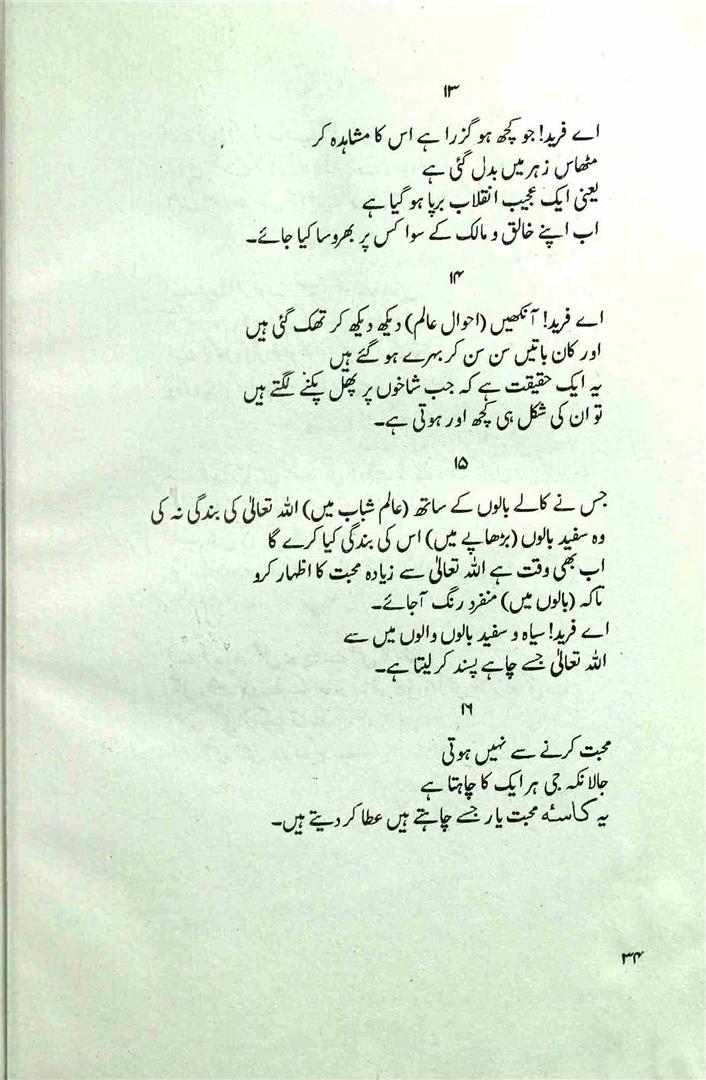 ۱۳
اے فرید! جو کچھ ہو گزرا ہے اس کا مشاہدہ کر
مٹھاس زہر میں بدل گئی ہے
یعنی ایک عجیب انقلاب برپا ہو گیا ہے
اب اپنے خالق و مالک کے سوا کس پر بھروسا کیا جائے۔
۱۴
اے فرید! آنکھیں (احوال عالم) دیکھ دیکھ کر تھک گئی ہیں
اور کان باتیں سن سن کر بہرے ہو گئے ہیں
یہ ایک حقیقت ہے کہ جب شاخوں پر پھل پکنے لگتے ہیں
تو ان کی شکل ہی کچھ اور ہوتی ہے۔
۱۵
جس نے کالے بالوں کے ساتھ (عالم شباب میں) اللہ تعالیٰ کی بندگی نہ کی
وہ سفید بالوں (بڑھاپے میں) اس کی بندگی کیا کرے گا
اب بھی وقت ہے اللہ تعالیٰ سے زیادہ محبت کا اظہار کرو
تاکہ (بالوں میں) منفرد رنگ آجائے۔
اے فرید! سیاہ و سفید بالوں والوں میں سے
اللہ تعالیٰ جسے چاہے پسند کر لیتا ہے۔
۱۶
محبت کرنے سے نہیں ہوتی
حالانکہ جی ہر ایک کا چاہتا ہے
یہ کاسۂ محبت یار جسے چاہتے ہیں عطا کر دیتے ہیں۔
۳۴